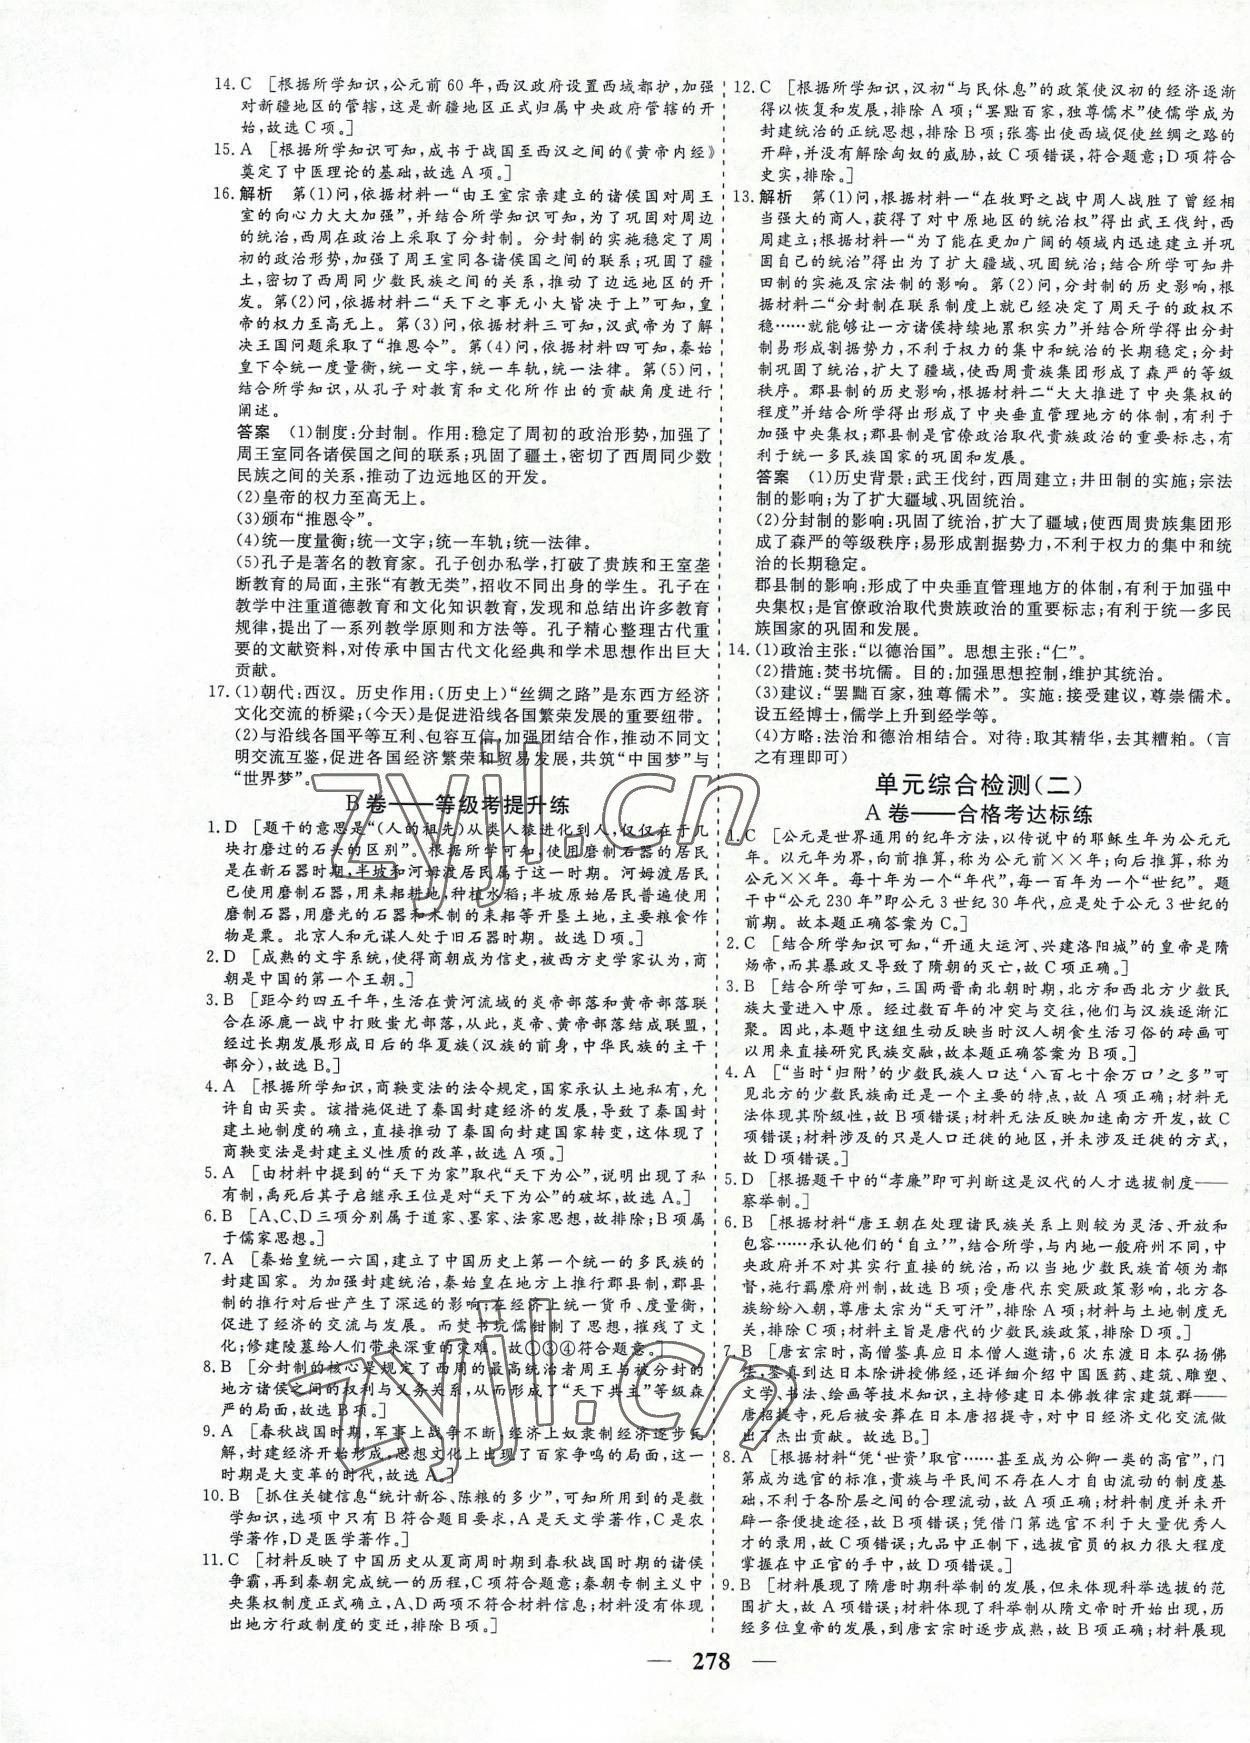 14. C　[根据所学知识,公元前 60 年,西汉政府设置西域都护,加强
对新疆地区的管辖,这是新疆地区正式归属中央政府管辖的开
始,故选 C 项。]
15. A　[根据所学知识可知,成书于战国至西汉之间的《黄帝内经》
奠定了中医理论的基础,故选 A 项。]
16. 解析　第(1)问,依据材料一“由王室宗亲建立的诸侯国对周王
室的向心力大大加强”,并结合所学知识可知,为了巩固对周边
的统治,西周在政治上采取了分封制。分封制的实施稳定了周
初的政治形势,加强了周王室同各诸侯国之间的联系;巩固了疆
土,密切了西周同少数民族之间的关系,推动了边远地区的开
发。第(2)问,依据材料二“天下之事无小大皆决于上”可知,皇
帝的权力至高无上。第(3)问,依据材料三可知,汉武帝为了解
决王国问题采取了“推恩令”。第(4)问,依据材料四可知,秦始
皇下令统一度量衡,统一文字,统一车轨,统一法律。第(5)问,
结合所学知识,从孔子对教育和文化所作出的贡献角度进行
阐述。
答案　(1)制度:分封制。作用:稳定了周初的政治形势,加强了
周王室同各诸侯国之间的联系;巩固了疆土,密切了西周同少数
民族之间的关系,推动了边远地区的开发。
(2)皇帝的权力至高无上。
(3)颁布“推恩令”。
(4)统一度量衡;统一文字;统一车轨;统一法律。
(5)孔子是著名的教育家。孔子创办私学,打破了贵族和王室垄
断教育的局面,主张“有教无类”,招收不同出身的学生。孔子在
教学中注重道德教育和文化知识教育,发现和总结出许多教育
规律,提出了一系列教学原则和方法等。孔子精心整理古代重
要的文献资料,对传承中国古代文化经典和学术思想作出巨大
贡献。
17. (1)朝代:西汉。历史作用:(历史上)“丝绸之路”是东西方经济
文化交流的桥梁;(今天)是促进沿线各国繁荣发展的重要纽带。
(2)与沿线各国平等互利、包容互信,加强团结合作,推动不同文
明交流互鉴,促进各国经济繁荣和贸易发展,共筑“中国梦”与
“世界梦”。
B 卷——等级考提升练
1. D　[题干的意思是“(人的祖先)从类人猿进化到人,仅仅在于几
块打磨过的石头的区别”。根据所学可知,使用磨制石器的居民
是在新石器时期,半坡和河姆渡居民属于这一时期。河姆渡居民
已使用磨制石器,用耒耜耕地,种植水稻;半坡原始居民普遍使用
磨制石器,用磨光的石器和木制的耒耜等开垦土地,主要粮食作
物是粟。北京人和元谋人处于旧石器时期。故选 D 项。]
2. D　[成熟的文字系统,使得商朝成为信史,被西方史学家认为,商
朝是中国的第一个王朝。]
3. B　[距今约四五千年,生活在黄河流域的炎帝部落和黄帝部落联
合在涿鹿一战中打败蚩尤部落,从此,炎帝、黄帝部落结成联盟,
经过长期发展形成日后的华夏族(汉族的前身,中华民族的主干
部分),故选 B。]
4. A　[根据所学知识,商鞅变法的法令规定,国家承认土地私有,允
许自由买卖。该措施促进了秦国封建经济的发展,导致了秦国封
建土地制度的确立,直接推动了秦国向封建国家转变,这体现了
商鞅变法是封建主义性质的改革,故选 A。]
5. A　[由材料中提到的“天下为家”取代“天下为公”,说明出现了私
有制,禹死后其子启继承王位是对“天下为公”的破坏,故选 A。]
6. B　[A、C、D 三项分别属于道家、墨家、法家思想,故排除;B 项属
于儒家思想。]
7. A　[秦始皇统一六国,建立了中国历史上第一个统一的多民族的
封建国家。为加强封建统治,秦始皇在地方上推行郡县制,郡县
制的推行对后世产生了深远的影响;在经济上统一货币、度量衡,
促进了经济的交流与发展。而焚书坑儒钳制了思想,摧残了文
化;修建陵墓给人们带来深重的灾难。故④符合题意。]
8. B　[分封制的核心是规定了西周的最高统治者周王与被分封的
地方诸侯之间的权利与义务关系,从而形成了“天下共主”等级森
严的局面,故选 B 项。]
9. A　[春秋战国时期,军事上战争不断,经济上奴隶制经济逐步瓦
解,封建经济开始形成,思想文化上出现了百家争鸣的局面,这一
时期是大变革的时代,故选 A。]
10. B　[抓住关键信息“统计新谷、陈粮的多少”,可知所用到的是数
学知识,选项中只有 B 符合题目要求,A 是天文学著作,C 是农
学著作,D 是医学著作。]
11. C　[材料反映了中国历史从夏商周时期到春秋战国时期的诸侯
争霸,再到秦朝完成统一的历程,C 项符合题意;秦朝专制主义中
央集权制度正式确立,A、D 两项不符合材料信息;材料没有体现
出地方行政制度的变迁,排除 B 项。]
12. C　[根据所学知识,汉初“与民休息”的政策使汉初的经济逐渐
得以恢复和发展,排除 A 项;“罢黜百家,独尊儒术”使儒学成为
封建统治的正统思想,排除 B 项;张骞出使西域促使丝绸之路的
开辟,并没有解除匈奴的威胁,故 C 项错误,符合题意;D 项符合
史实,排除。]
13. 解析　第(1)问,根据材料一“在牧野之战中周人战胜了曾经相
当强大的商人,获得了对中原地区的统治权”得出武王伐纣,西
周建立;根据材料一“为了能在更加广阔的领域内迅速建立并巩
固自己的统治”得出为了扩大疆域、巩固统治;结合所学可知井
田制的实施及宗法制的影响。第(2)问,分封制的历史影响,根
据材料二“分封制在联系制度上就已经决定了周天子的政权不
稳……就能够让一方诸侯持续地累积实力”并结合所学得出分封
制易形成割据势力,不利于权力的集中和统治的长期稳定;分封
制巩固了统治,扩大了疆域,使西周贵族集团形成了森严的等级
秩序。郡县制的历史影响,根据材料二“大大推进了中央集权的
程度”并结合所学得出形成了中央垂直管理地方的体制,有利于
加强中央集权;郡县制是官僚政治取代贵族政治的重要标志,有
利于统一多民族国家的巩固和发展。
答案　(1)历史背景:武王伐纣,西周建立;井田制的实施;宗法
制的影响;为了扩大疆域、巩固统治。
(2)分封制的影响:巩固了统治,扩大了疆域;使西周贵族集团形
成了森严的等级秩序;易形成割据势力,不利于权力的集中和统
治的长期稳定。
郡县制的影响:形成了中央垂直管理地方的体制,有利于加强中
央集权;是官僚政治取代贵族政治的重要标志;有利于统一多民
族国家的巩固和发展。
14. (1)政治主张:“以德治国”。思想主张:“仁”。
(2)措施:焚书坑儒。目的:加强思想控制,维护其统治。
(3)建议:“罢黜百家,独尊儒术”。实施:接受建议,尊崇儒术。
设五经博士,儒学上升到经学等。
(4)方略:法治和德治相结合。对待:取其精华,去其糟粕。(言
之有理即可)
单元综合检测(二)
A 卷——合格考达标练
1. C　[公元是世界通用的纪年方法,以传说中的耶稣生年为公元元
年。以元年为界,向前推算,称为公元前××年;向后推算,称为
公元××年。每十年为一个“年代”,每一百年为一个“世纪”。题
干中“公元 230 年”即公元 3 世纪 30 年代,应是处于公元 3 世纪的
前期。故本题正确答案为 C。]
2. C　[结合所学知识可知,“开通大运河、兴建洛阳城”的皇帝是隋
炀帝,而其暴政又导致了隋朝的灭亡,故 C 项正确。]
3. B　[结合所学可知,三国两晋南北朝时期,北方和西北方少数民
族大量进入中原。经过数百年的冲突与交往,他们与汉族逐渐汇
聚。因此,本题中这组生动反映当时汉人胡食生活习俗的砖画可
以用来直接研究民族交融,故本题正确答案为 B 项。]
4. A　[“当时‘归附’的少数民族人口达‘八百七十余万口’之多”可
见北方的少数民族南迁是一个主要的特点,故 A 项正确;材料无
法体现其阶级性,故 B 项错误;材料无法反映加速南方开发,故 C
项错误;材料涉及的只是人口迁徙的地区,并未涉及迁徙的方式,
故 D 项错误。]
5. D　[根据题干中的“孝廉”即可判断这是汉代的人才选拔制度——
察举制。]
6. B　[根据材料“唐王朝在处理诸民族关系上则较为灵活、开放和
包容……承认他们的‘自立’”,结合所学,与内地一般府州不同,中
央政府并不对其实行直接的统治,而以当地少数民族首领为都
督,施行羁縻府州制,故选 B 项;受唐代东突厥政策影响,北方各
族纷纷入朝,尊唐太宗为“天可汗”,排除 A 项;材料与土地制度无
关,排除 C 项;材料主旨是唐代的少数民族政策,排除 D 项。]
7. B　[唐玄宗时,高僧鉴真应日本僧人邀请,6 次东渡日本弘扬佛
法,鉴真到达日本除讲授佛经,还详细介绍中国医药、建筑、雕塑、
文学、书法、绘画等技术知识,主持修建日本佛教律宗建筑群——
唐招提寺,死后被安葬在日本唐招提寺,对中日经济文化交流做
出了杰出贡献。故选 B。]
8. A　[根据材料“凭‘世资’取官……甚至成为公卿一类的高官”,门
第成为选官的标准,贵族与平民间不存在人才自由流动的制度基
础,不利于各阶层之间的合理流动,故 A 项正确;材料制度并未开
辟一条便捷途径,故 B 项错误;凭借门第选官不利于大量优秀人
才的录用,故 C 项错误;九品中正制下,选拔官员的权力很大程度
掌握在中正官的手中,故 D 项错误。]
9. B　[材料展现了隋唐时期科举制的发展,但未体现科举选拔的范
围扩大,故 A 项错误;材料体现了科举制从隋文帝时开始出现,历
经多位皇帝的发展,到唐玄宗时逐步成熟,故 B 项正确;材料展现
— 278 —
zyjl.cn
zyjl.cn